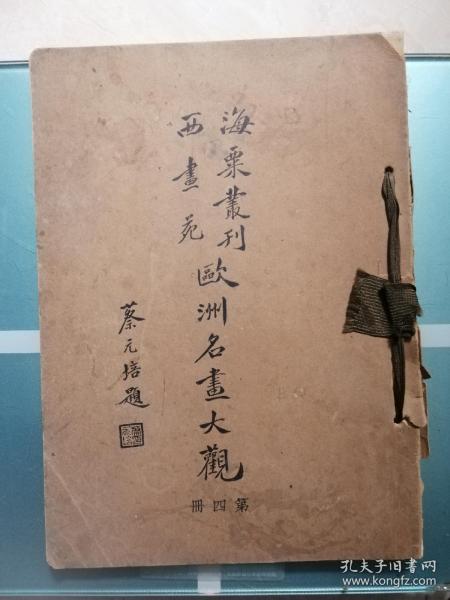 海粟叢刊
西畫苑
歐洲名畫大觀
蔡元培題
第四册
孔夫子旧书网
www.kongfz.com